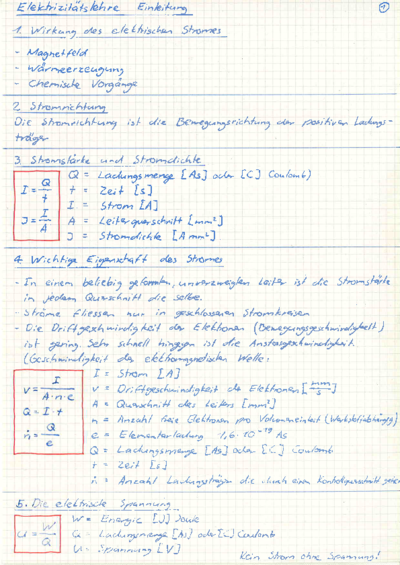 Elektrizitätslehre Einleitung
1
1. Wirkung des elektrischen Stromes
- Magnetfeld
- Wärmeerzeugung
- Chemische Vorgänge
2. Stromrichtung
Die Stromrichtung ist die Bewegungsrichtung der positiven Ladungs-
träger
3. Stromstärke und Stromdichte
I = Q/t
J = I/A
Q = Ladungsmenge [As] oder [C] Coulomb)
t = Zeit [s]
I = Strom [A]
A = Leiterquerschnitt [mm²]
J = Stromdichte [A mm²]
4. Wichtige Eigenschaft des Stromes
- In einem beliebig geformten, unverzweigten Leiter ist die Stromstärke
in jedem Querschnitt die selbe.
- Ströme fliessen nur in geschlossenen Stromkreisen
- Die Driftgeschwindigkeit der Elektronen (Bewegungsgeschwindigkeit)
ist gering. Sehr schnell hingegen ist die Anstossgeschwindigkeit.
(Geschwindigkeit der elektromagnetischen Welle.
v = I/(A·n·e)
Q = I·t
ṅ = Q/e
I = Strom [A]
v = Driftgeschwindigkeit der Elektronen [mm/s]
A = Querschnitt des Leiters [mm²]
n = Anzahl freie Elektronen pro Volumeneinheit (Werkstoffabhängig)
e = Elementarladung 1,6·10⁻¹⁹ As
Q = Ladungsmenge [As] oder [C] Coulomb
t = Zeit [s]
ṅ = Anzahl Ladungsträger die durch einen Kontrollquerschnitt gehen
5. Die elektrische Spannung
U = W/Q
W = Energie [J] Joule
Q = Ladungsmenge [As] oder [C] Coulomb
U = Spannung [V]
Kein Strom ohne Spannung!